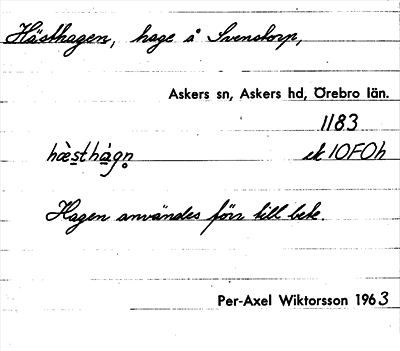 Hästhagen, hage å Svenstorp,
Askers sn, Askers hd, Örebro län.
1183
hæ̀sthàgn̥ ek 10F0h
Hagen användes förr till bete.
Per-Axel Wiktorsson 1963